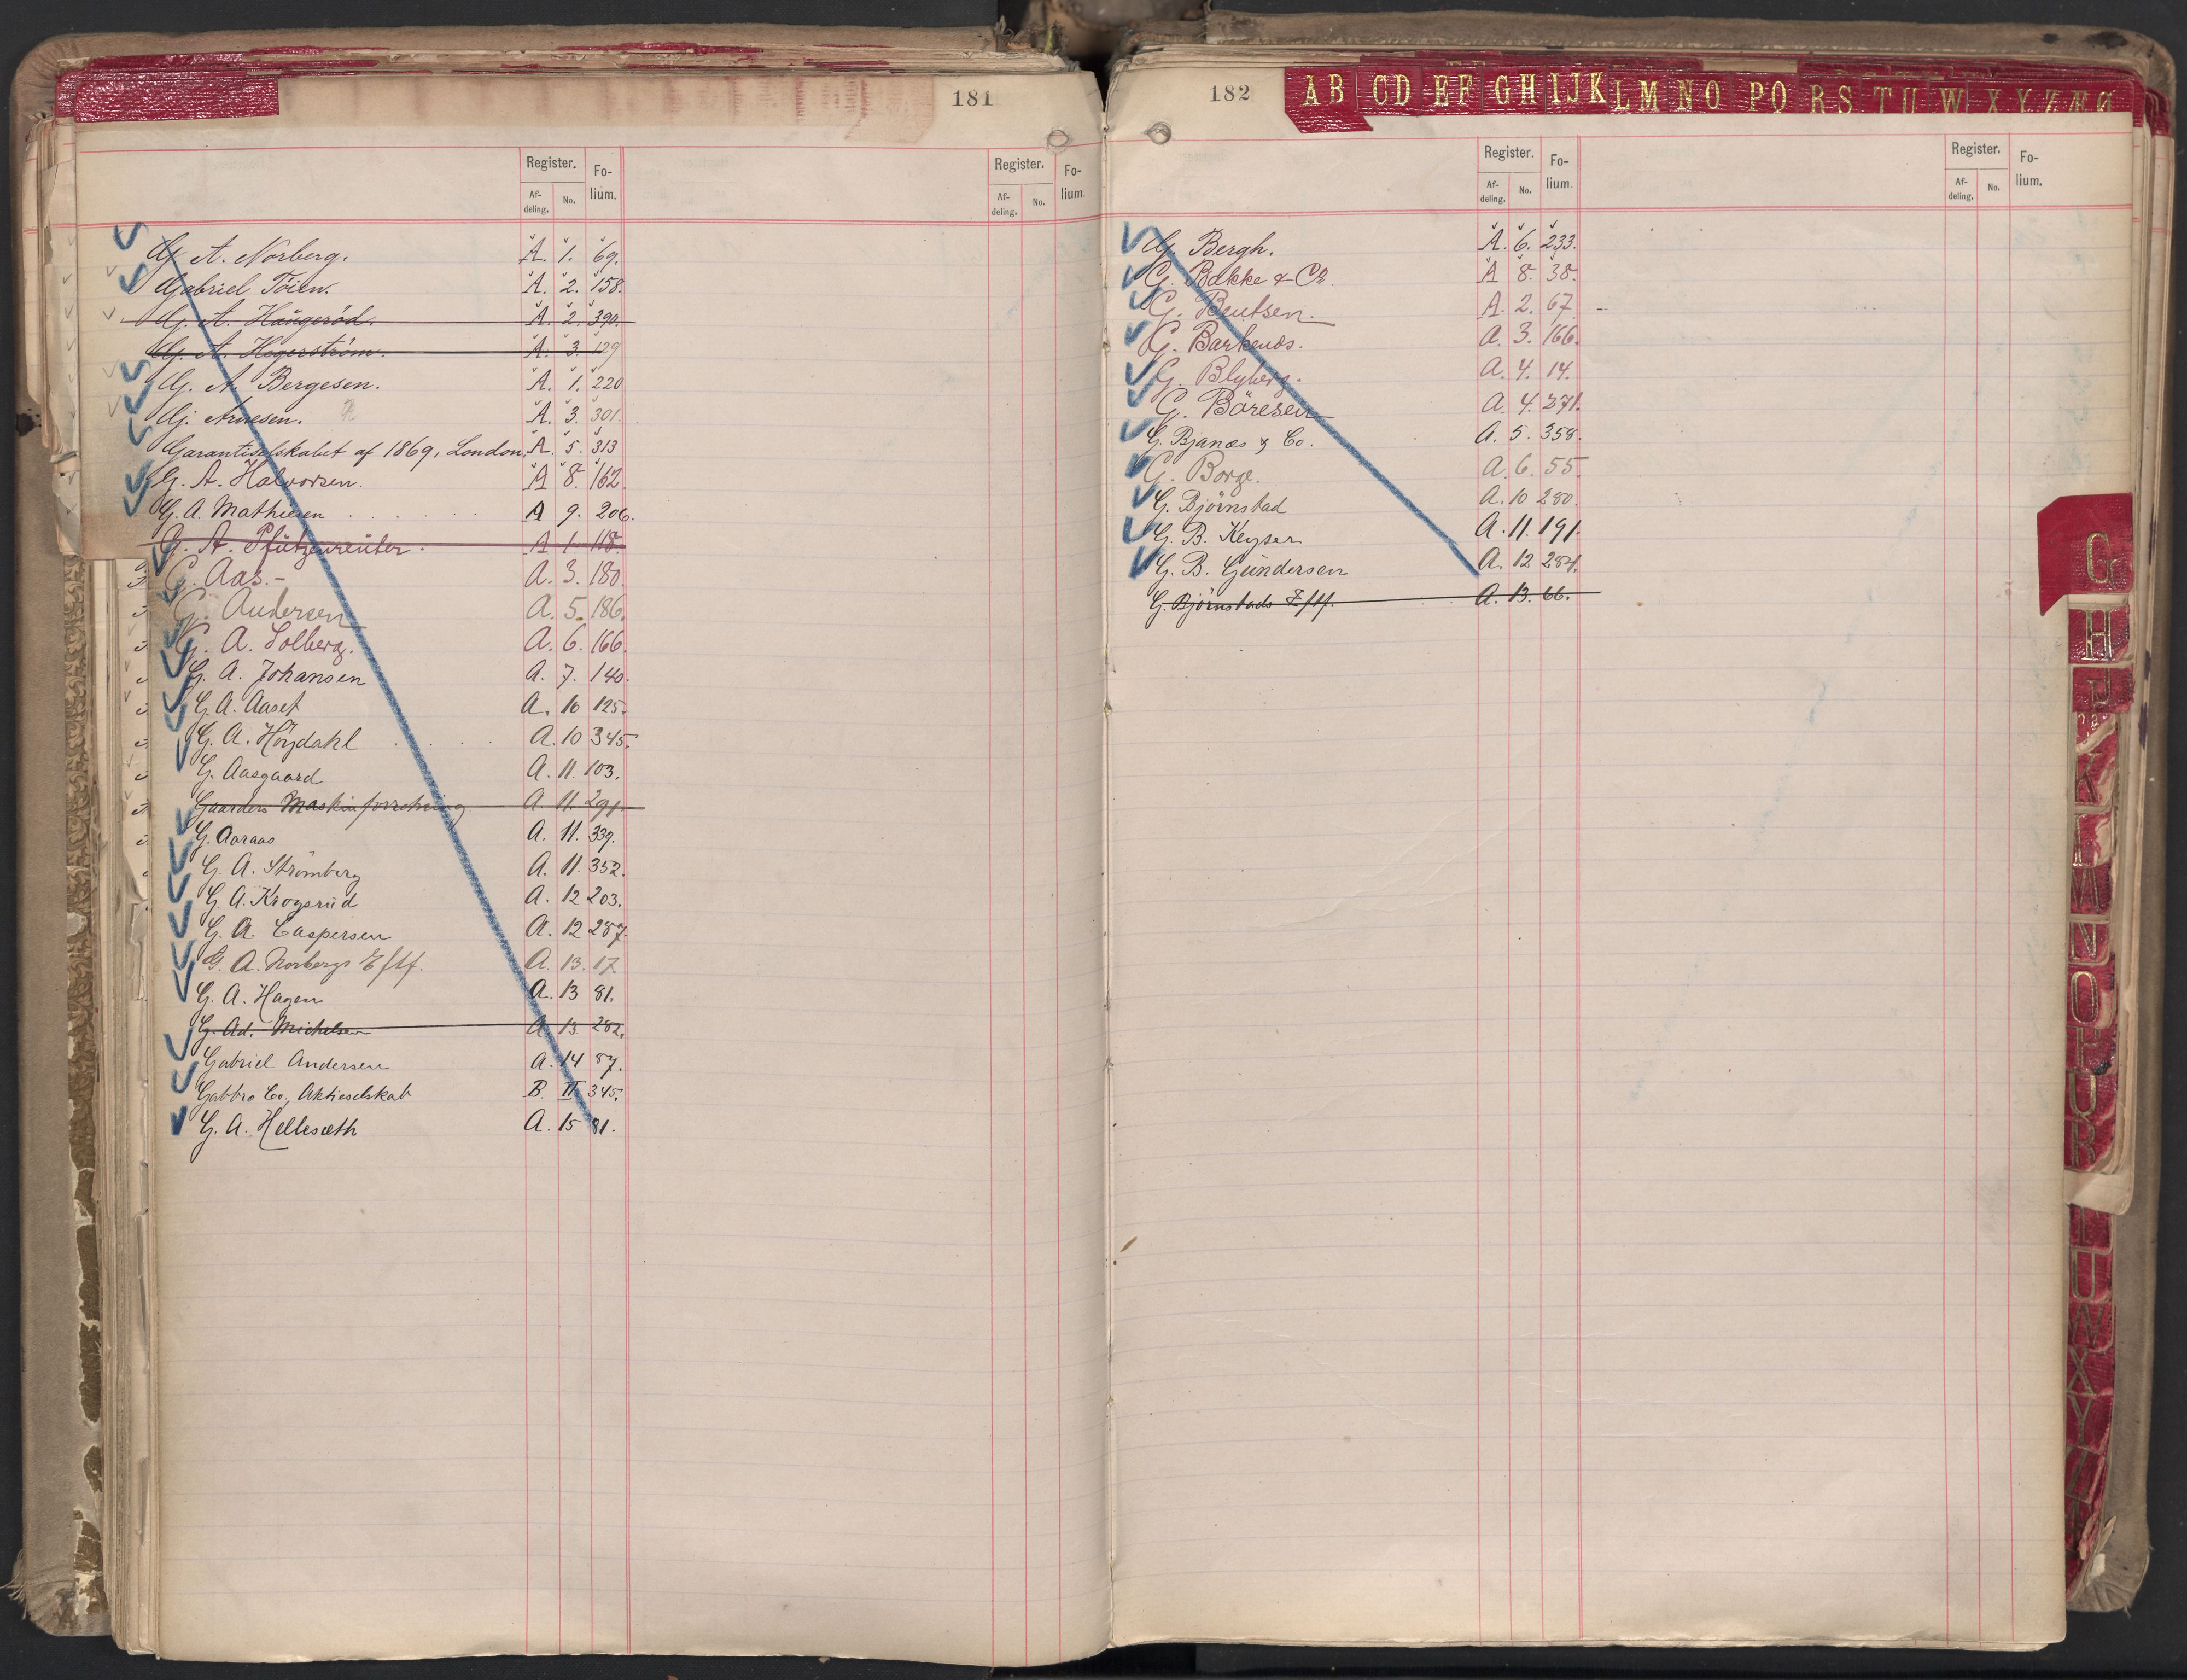 181
Register. Fo-
Register. Fo-
lium.
lium.
Af- No.
Af- No.
deling.
deling.
G. A. Norberg. A. 1. 69.
Gabriel Töien. A. 2. 158.
G. A. Haugeröd. A. 2. 390.
G. A. Hegerström. A. 3. 129
G. A. Bergesen. A. 1. 220
G. Arnesen. A. 3. 301.
Garantiselskabet af 1869, London A. 5. 313
G. A. Halvorsen. A 8. 162.
G. A. Mathiesen A 9. 206.
G. A. Pfützenreuter. A 1. 118.
G. Aas. - A. 3. 180.
G. Andersen A. 5. 186.
G. A. Solberg. A. 6. 166.
G. A. Johansen A. 7. 140.
G. A. Aaset A. 10 125.
G. A. Höydahl A. 10 345.
G. Aasgaard A. 11. 103.
Gaarders Maskinforretning A 11. 291.
G. Aaraas A. 11. 339.
G. A. Strömberg A. 11. 352.
G. A. Krogsrud A. 12 203.
G. A. Caspersen A. 12 287.
G. A. Norbergs Eftf. A. 13. 17
G. A. Hagen A. 13 81.
G. Ad. Michelsen A. 13 282.
Gabriel Andersen A. 14 87.
Gabbro Co, Aktieselskab B. II 345.
G. A. Hellesæth A. 15 81.
182
AB CD EF GH IJK LM NO PQ RS TU W X Y Z Æ Ø
Register. Fo-
Register. Fo-
lium.
lium.
Af- No.
Af- No.
deling.
deling.
G. Bergh. A. 6. 233.
G. Bakke & Co. A 8. 38.
G. Bentsen. A. 2. 67.
G. Barkenæs. A. 3. 166.
G. Blyberg. A. 4. 14.
G. Böresen A. 4. 271.
G. Bjanæs & Co. A. 5. 358.
G. Borge. A. 6. 55
G. Björnstad A. 10 280.
G. B. Keyser A. 11. 191.
G. B. Gundersen A. 12 284.
G. Björnstads Eftf. A. 13. 66.
G
H
J
K
L
M
N
O
P
Q
R
U
W
X
Y